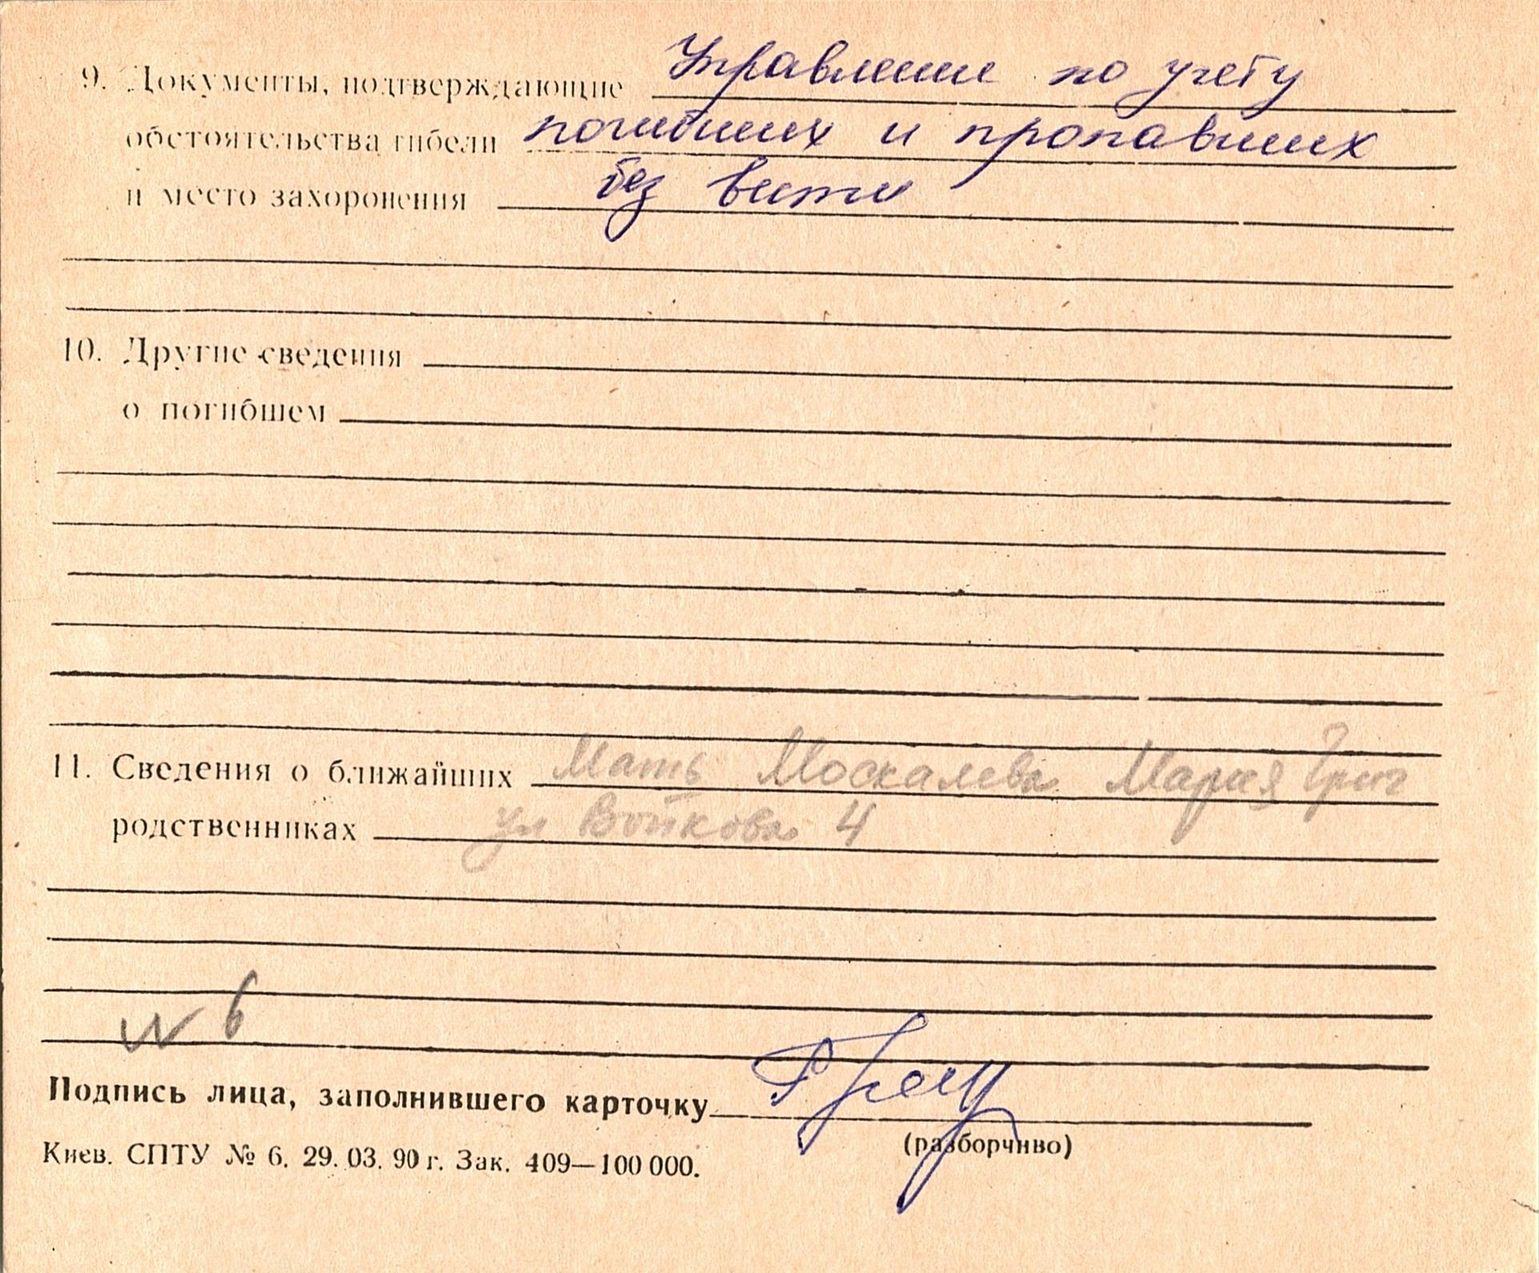 9. Документы, подтверждающие Управление по учету
обстоятельства гибели погибших и пропавших
и место захоронения без вести
10. Другие сведения
о погибшем
11. Сведения о ближайших Мать Москалева Мария Григ
родственниках ул Войкова 4
N 6
Подпись лица, заполнившего карточку
(разборчиво)
Киев. СПТУ № 6. 29. 03. 90 г. Зак. 409—100 000.